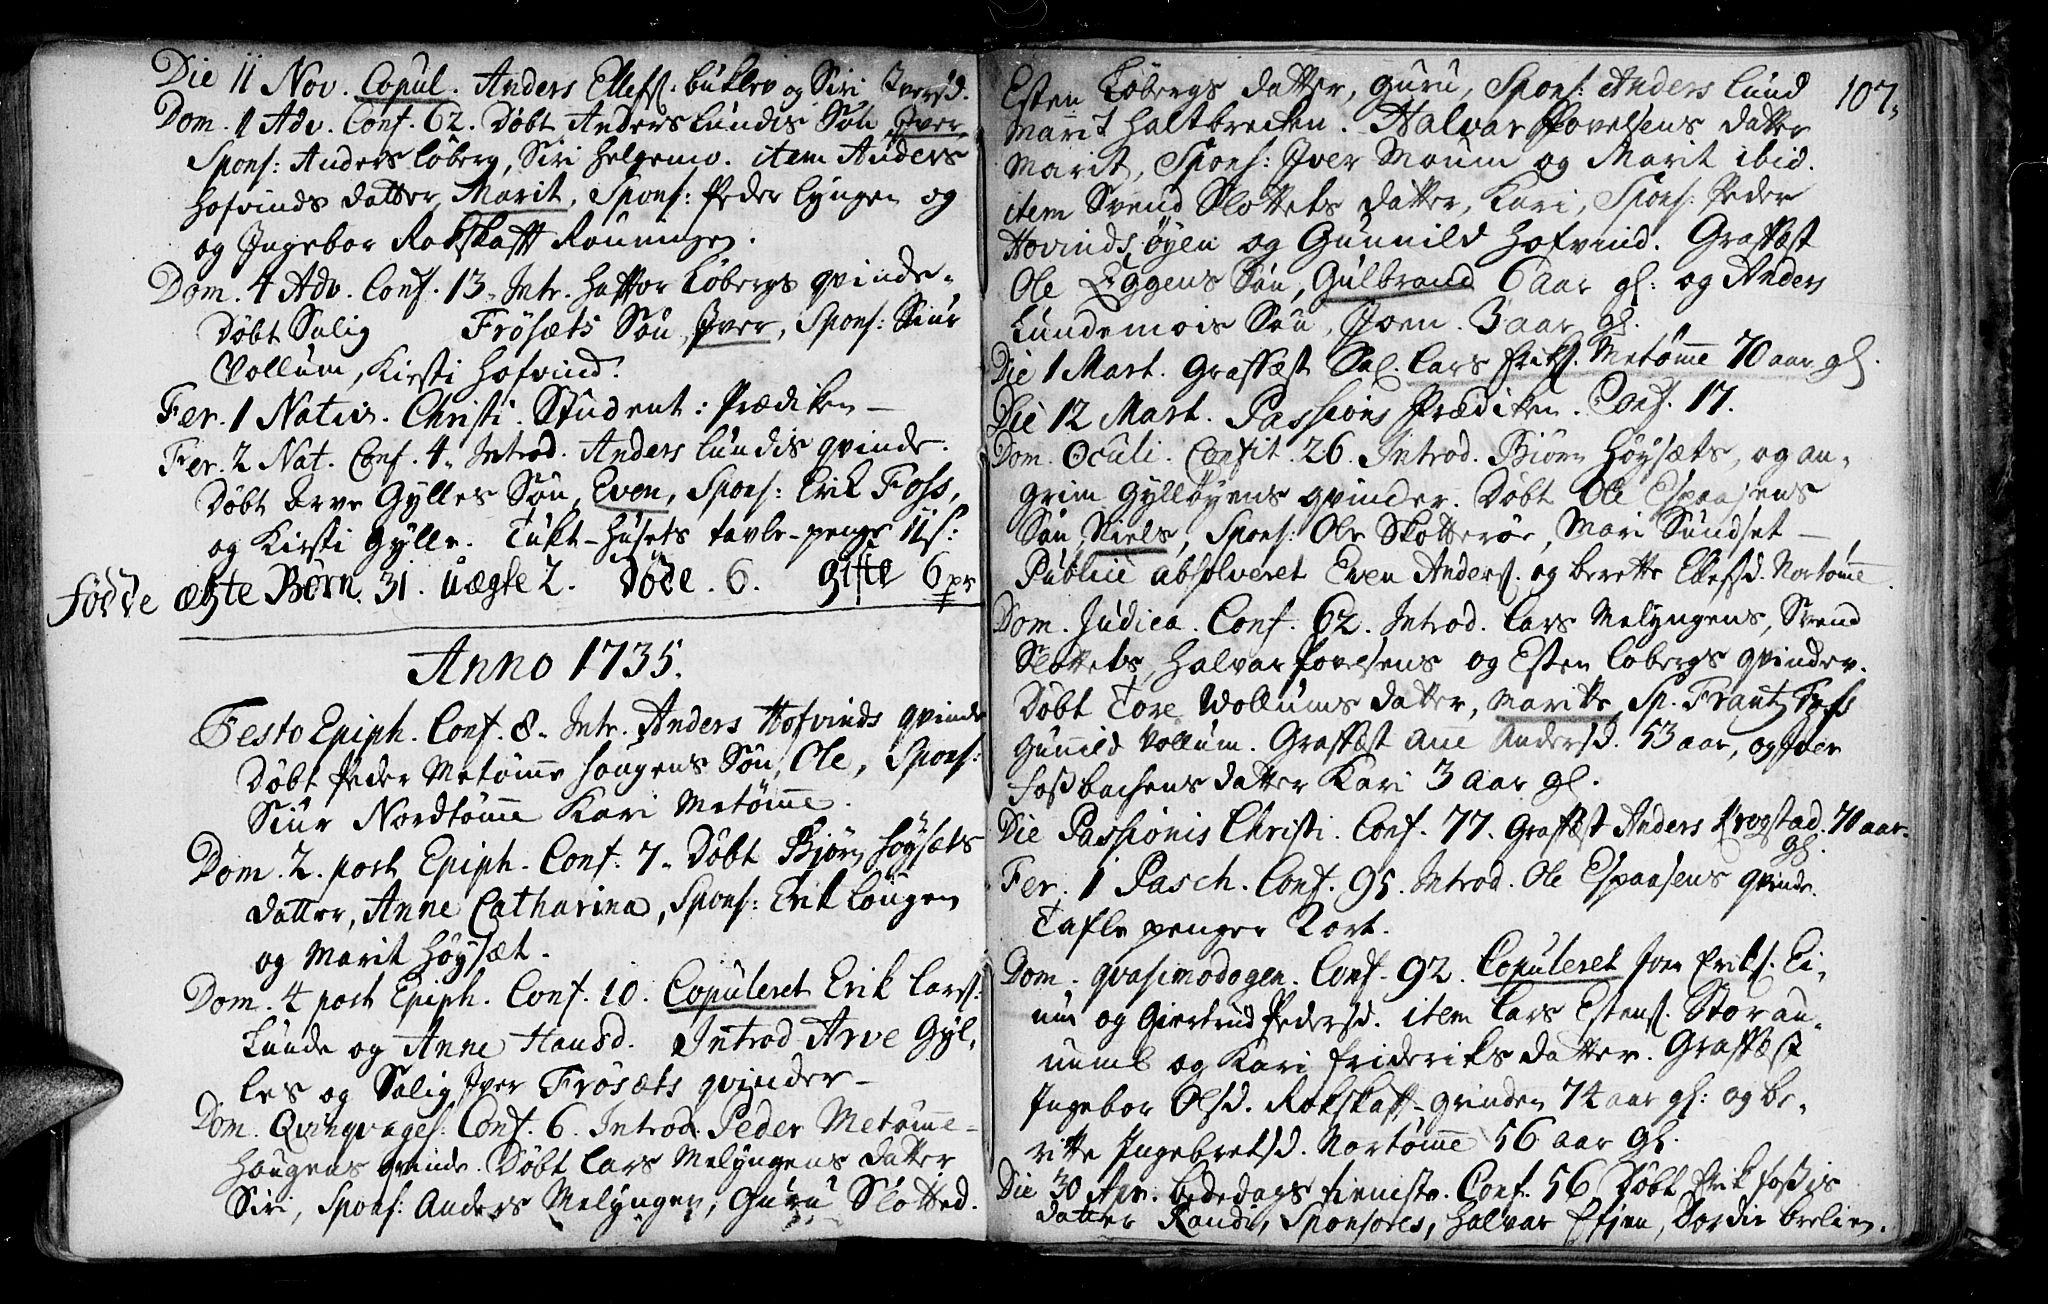 Die 11 Nov. Copul. Anders Ellefs. buklev og Siri Iversd.
Dom. 1 Adv. Conf. 62. Döbt Anders Lundis Sön Iver
Spons: Anders Löberg, Siri Helgemo. item Anders
Hofvinds datter Marit, Spons: Peder Lyngen og
og Ingebor Rokskaft Rönningen.
Dom. 4 Adv. Conf. 13. Intr. Haftor Löbergs qvinde.
Döbt Salig Frösæts Sön, Iver, Spons: Siur
Vollum, Kirsti Hofvind.
Fer. 1 Nativ. Christi. Student: Prædiken –
Fer. 2 Nat. Conf. 4. Introd. Anders Lundis qvinde.
Döbt Arve Gylles Sön, Even, Spons: Erik Foss,
og Kirsti Gylle. Tukt-Husets tavle-penge 11 s:
Födde ægte Börn. 31. uægte 2. Döde. 6. Gifte 6 pr
Anno 1735.
Festo Epiph. Conf. 8. Intr. Anders Hofvinds qvinde
Döbt Peder Metömme Haugens Sön, Ole, Spons:
Siur Nordtömme Kari Metömme.
Dom. 2. post Epiph. Conf. 7. Döbt Biörn Höysæts
datter, Anne Catharina, Spons: Erik Löngen
og Marit Höysæt.
Dom. 4 post Epiph. Conf. 10. Copuleret Erik Lars:
Lunde og Anne Hansd. Introd Arve Gyl,
les og Salig Iver Frösæts qvinder –
Dom. Qvinqvages: Conf. 6. Introd. Peder Metömme-
Haugens qvinde. Döbt Lars Melyngens datter
Siri, Spons: Anders Melyngen, Guru Slotted.
107.
Esten Löbergs datter, Guru, Spons: Anders Lund
Marit Haltbrecken. Halvar Povelsens datter
Marit, Spons: Iver Moum og Marit ibid.
item Svend Slottets datter, Kari, Spons: Peder
Hovindsöyen og Gunnild Hofvind. Graffæst
Ole Eggens Sön, Gulbrand 6 aar gl: og Anders
Lundemois Sön, Joen. 3 aar gl.
Die 1 Mart. Graffæst Sal. Lars Eriks. Metömme 70 aar gl.
Die 12 Mart. Passions Prædiken. Conf. 17.
Dom. Oculi. Confit. 26. Introd. Biörn Höysæts, og an,
grim Gyllöyens qvinder. Döbt Ole Espaasens
Sön Niels, Spons: Ole Skotteröe, Mari Sundset –
Publice absolveret Even Anders. og berette Ellefsd. Nortömme.
Dom. Judica. Conf. 62. Introd. Lars Melyngens, Svend
Slottets, Halvar Povelsens og Esten Löbergs qvinder.
Döbt Tore Wollums datter, Maritte, Sp. Frantz Foss
Gunnild Vollum. Graffæst Anne Andersd. 53 aar, og Iver
Fossbachens datter Kari 3 aar gl.
Die Passionis Christi. Conf. 77. Graffæst Anders Krogstad. 70 aar.
gl.
Fer. 1 Pasch. Conf. 95. Introd. Ole Espaasens qvinde.
Tafle penger 2 ort.
Dom. qvasimodogen. Conf. 92. Copuleret Joen Eriks. Ei,
um og Giertrud Pedersd. item Lars Estens. Storau,
nemb og Kari Frideriks datter. Graffæst
Ingebor Olsd. Rokskaft-grinden 74 aar gl: og be,
ritte Ingebretsd. Nortömme 56 aar gl.
Die 30 Apr. bededags tienste. Conf. 56 Döbt Erik Fossis
datter Randi, Sponsores, Halvar Efjen, Dordie brelien.